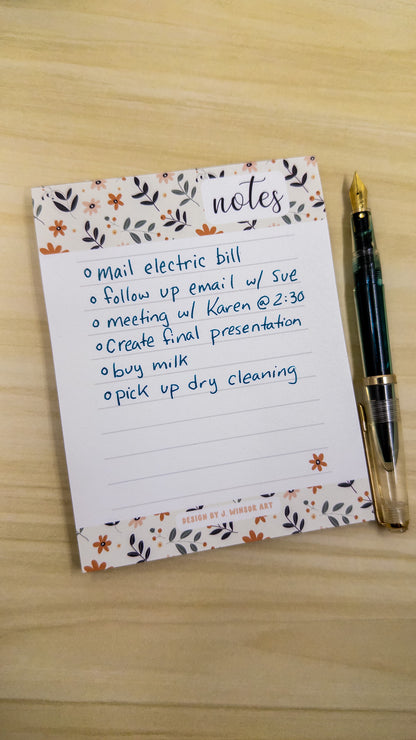 notes
mail electric bill
follow up email w/ Sue
meeting w/ Karen @ 2:30
Create final presentation
buy milk
pick up dry cleaning
DESIGN BY J. WINSOR ART